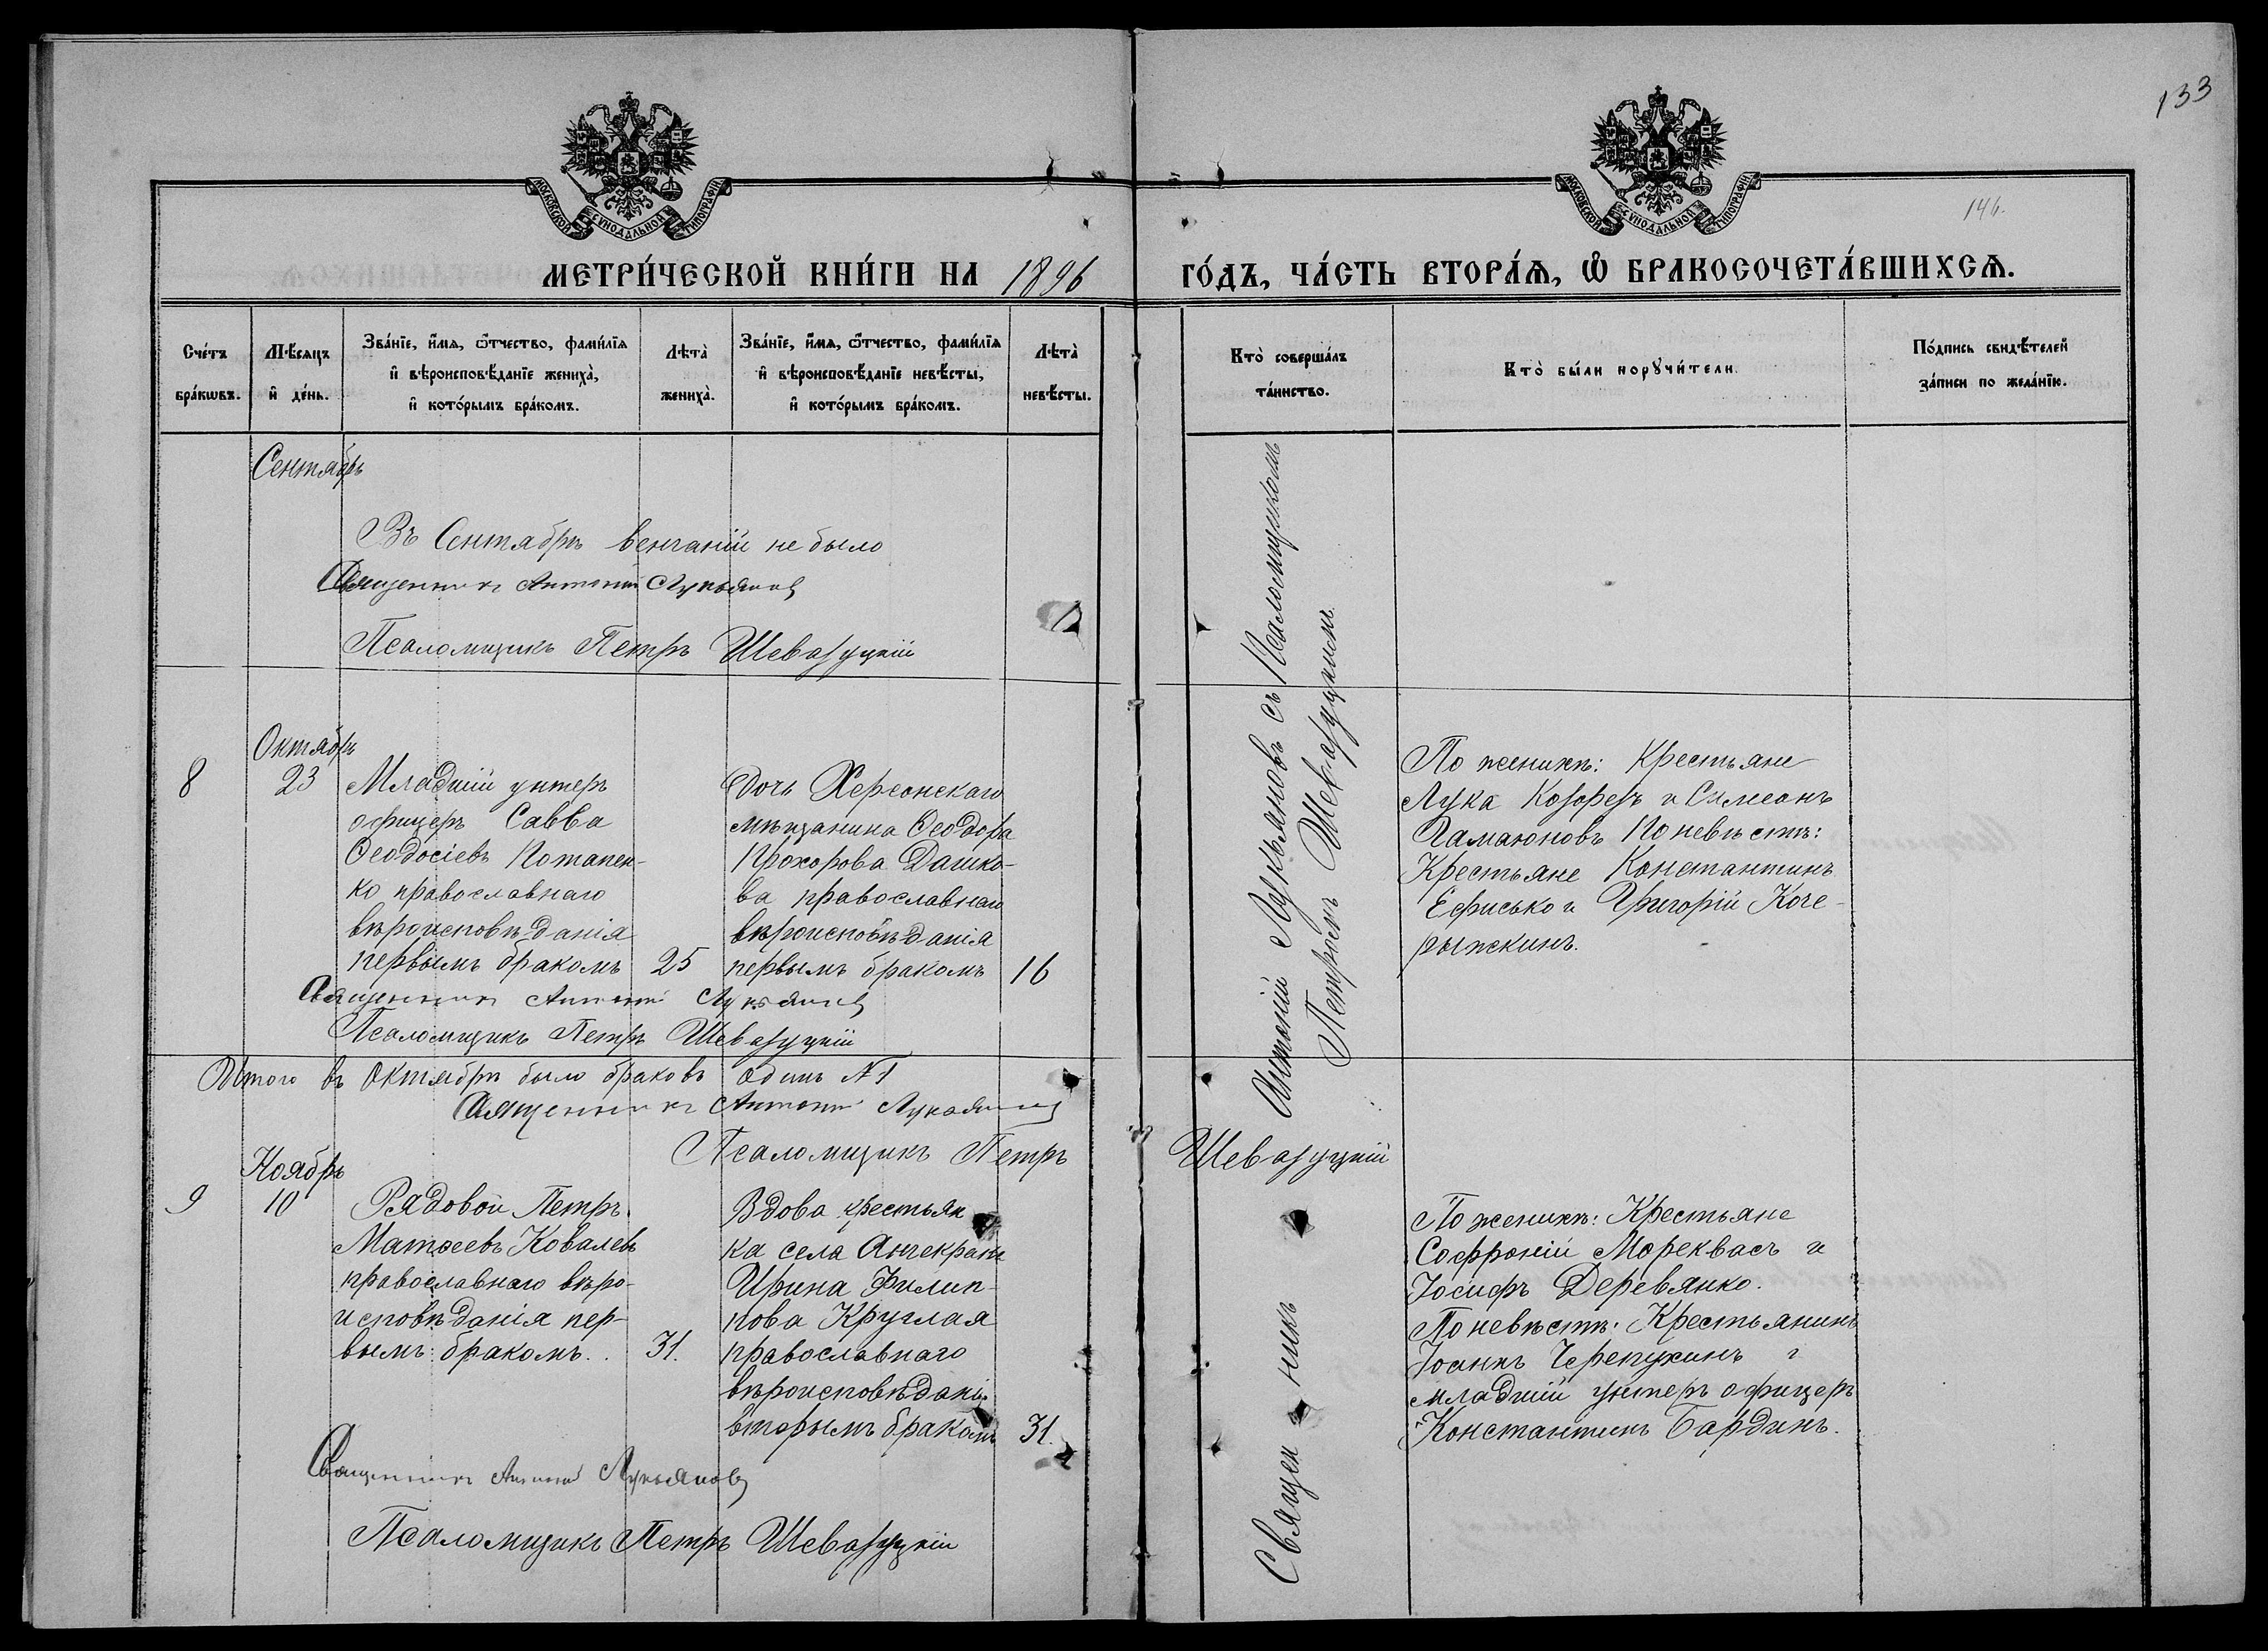 133
146.
МОСКОВСКОЙ СУНОДАЛЬНОЙ ТИПОГРАФІИ
МОСКОВСКОЙ СУНОДАЛЬНОЙ ТИПОГРАФІИ
МЕТРИ́ЧЕСКОЙ КНИ́ГИ НА 1896 ГО́ДЪ, ЧА́СТЬ ВТОРА́Я, Ѡ БРАКОСОЧЕТА́ВШИХСЯ.
Сче́тъ
бра́кѡвъ.
Мѣ́сяцъ
и҆ де́нь.
Зва́нїе, и҆́мя, ѻ҆́тчество, фами́лїя
и҆ вѣроисповѣ́данїе жениха̀,
и҆ кото́рымъ бра́комъ.
Лѣта̀
жениха̀.
Зва́нїе, и҆́мя, ѻ҆́тчество, фами́лїя
и҆ вѣроисповѣ́данїе невѣ́сты,
и҆ кото́рымъ бра́комъ.
Лѣта̀
невѣ́сты.
Кто̀ соверша́лъ
та́инство.
Кто̀ бы́ли порꙋчи́тели.
По́дпись свидѣ́телей
за́писи по жела́нїю.
Сентябрь
Въ Сентябрѣ венчаній не было
Священникъ Антоній Лукьяновъ
Псаломщикъ Петръ Шевазуцкій
Октябрь
8
23
Младшій унтеръ
офицеръ Савва
Ѳеодосіевъ Потапен-
ко православнаго
вѣроисповѣданія
первымъ бракомъ
25
Дочь Херсонскаго
мѣщанина Ѳеодора
Прохорова Дашко-
ва православнаго
вѣроисповѣданія
первымъ бракомъ
16
По женихѣ: Крестьяне
Лука Козорезъ и Симеонъ
Гамаюновъ По невѣстѣ:
Крестьяне Константинъ
Ефисько и Григорій Коче-
рыжкинъ.
Священникъ Антоній Лукьяновъ
Псаломщикъ Петръ Шевазуцкій
Итого въ Октябрѣ было браковъ одинъ №1
Священникъ Антоній Лукьяновъ
Псаломщикъ Петръ Шевазуцкій
Ноябрь
9
10
Рядовой Петръ
Матѳеевъ Ковалевъ
православнаго вѣро-
исповѣданія пер-
вымъ бракомъ.
31.
Вдова крестьян
ка села
Ирина Филип-
пова Круглая
православнаго
вѣроисповѣданія
вторымъ бракомъ
31.
По женихѣ: Крестьяне
Софроній Мореквасъ и
Іосифъ Деревянко.
По невѣстѣ: Крестьянинъ
Іоаннъ Черепухинъ и
младшій унтеръ офицеръ
Константинъ Бардинъ.
Священникъ Антоній Лукьяновъ
Псаломщикъ Петръ Шевазуцкій
Священникъ Антоній Лукьяновъ съ Псаломщикомъ
Петромъ Шевазуцкимъ.